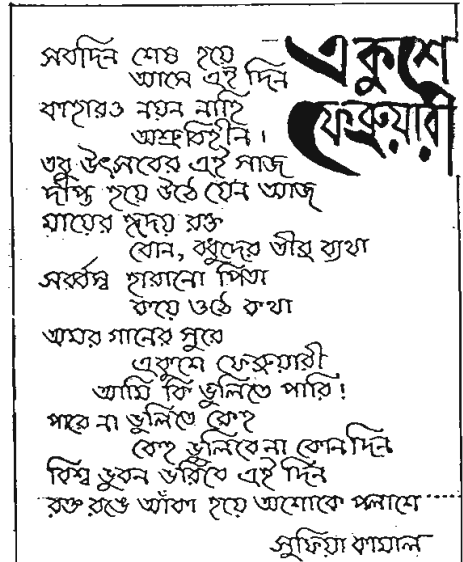 একুশে
ফেব্রুয়ারী
সবদিন শেষ হয়ে
আসে এই দিন
কাহারও নয়ন নাহি
অশ্রুবিহীন।
তবু উৎসবের এই সাজ
দীপ্ত হয়ে উঠে যেন আজ
মায়ের হৃদয় রক্ত
বোন, বধুদের তীব্র ব্যথা
সর্ব্বস্ব হারানো পিতা
কয়ে ওঠে কথা
অমর গানের সুরে
একুশে ফেব্রুয়ারী
আমি কি ভুলিতে পারি!
পারে না ভুলিতে কেহ
কেহ ভুলিবেনা কোনদিন
বিশ্ব ভুবন ভরিবে এই দিন
রক্ত রঙে আঁকা হয়ে অশোকে পলাশে
সুফিয়া কামাল